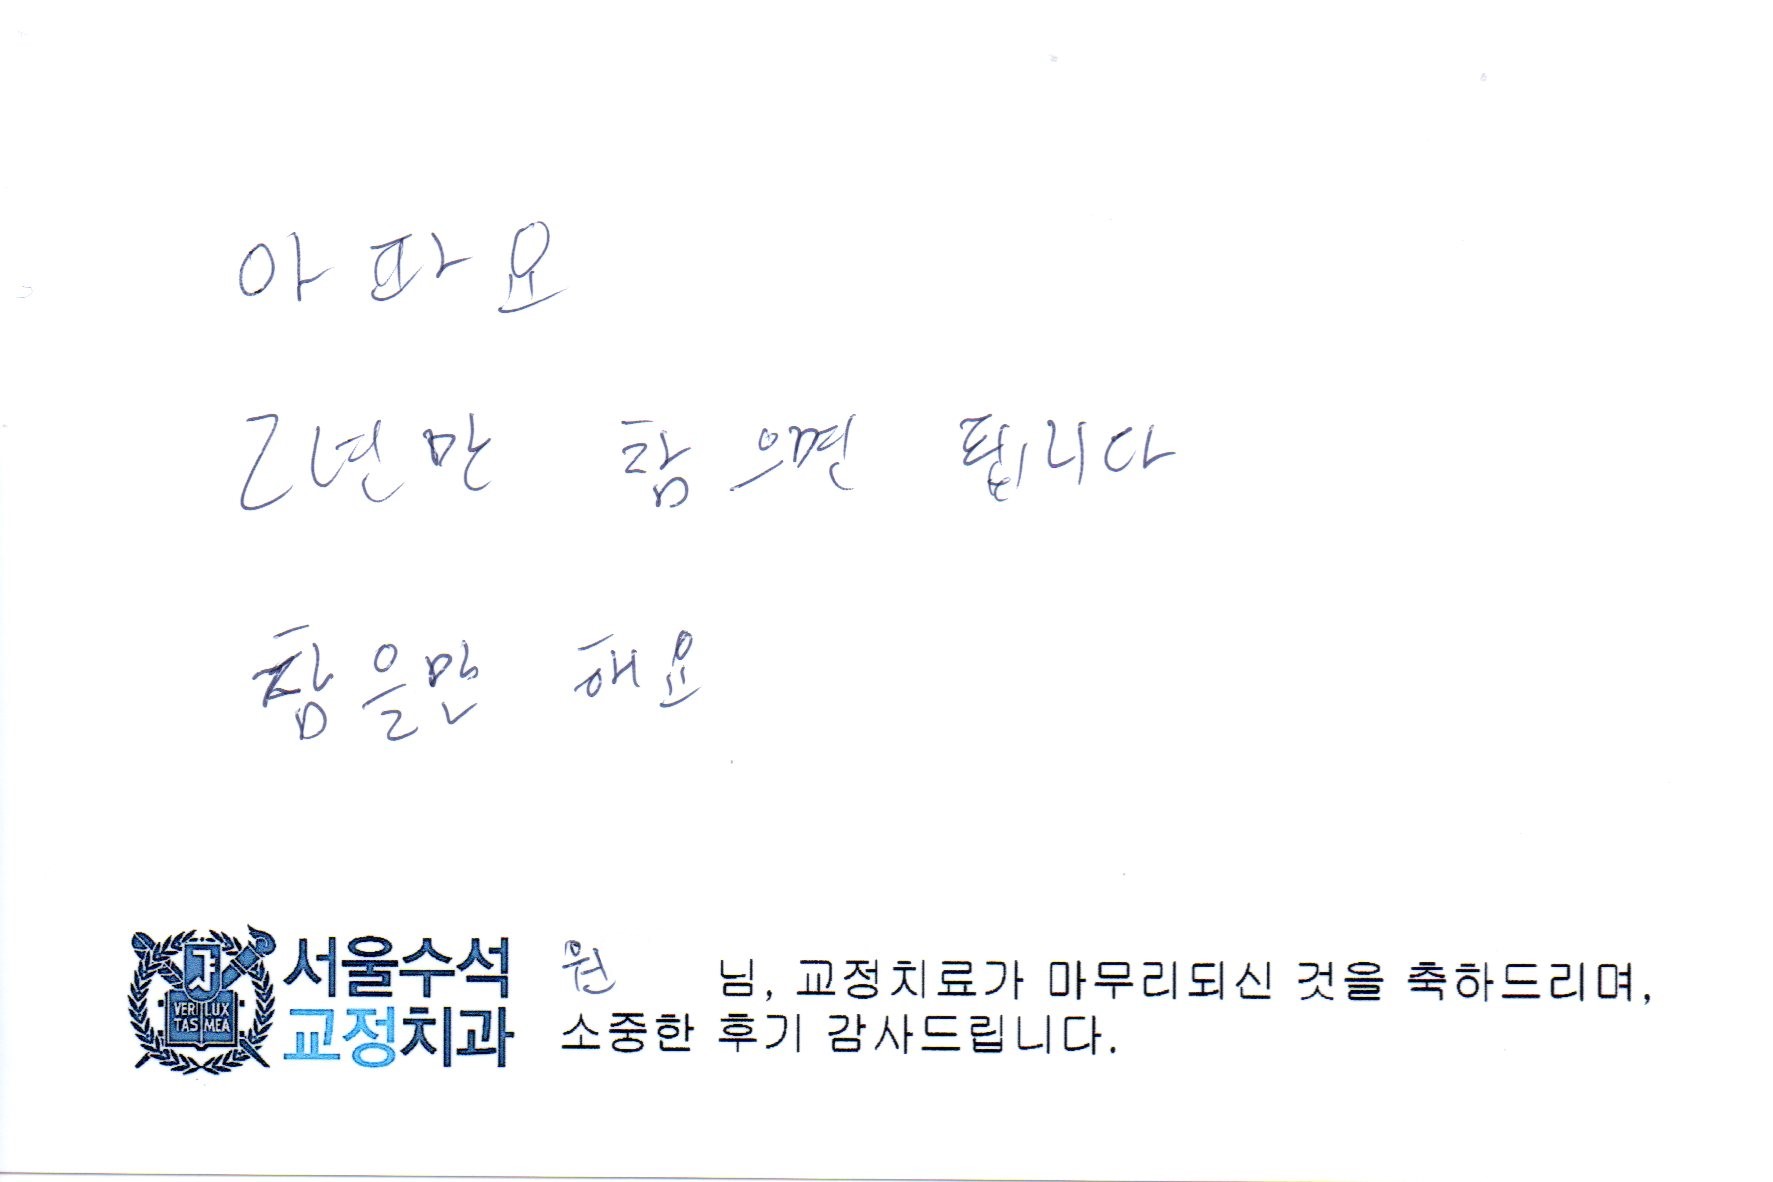 아파요
2년만 참으면 됩니다
참을만 해요
서울수석
교정치과
원 님, 교정치료가 마무리되신 것을 축하드리며,
소중한 후기 감사드립니다.
VERI LUX
TAS MEA